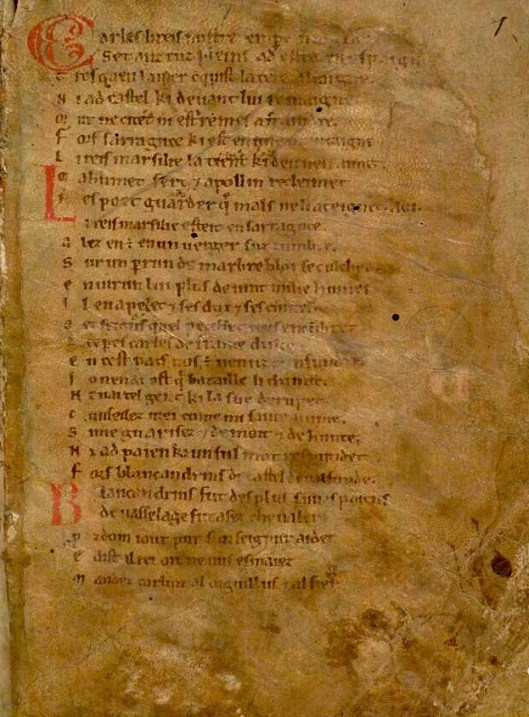 1
Carles li reis nostre emp
Set anz tuz pleins ad estet en espaigne
tresquen la mer cūquist la tere altaigne.
N i ad castel ki deuant lui remaigne
M ur ne citet ni est remes a fraindre.
F ors sarraguce ki est en une muntaigne
L i reis marsilie la tient ki deu nen aimet.
M ahumet sert ⁊ apollin recleimet
N es poet guarder q̄ mals ne li ateignet. Aoi.
L i reis marsilie esteit en sarraguce.
A lez en ē en un uerger suz lumbre.
S ur un perrun de marbre bloi se culched
E nuirun lui plus de uint milie humes
I l en apelet ⁊ ses dux ⁊ ses cuntes
quel pecchet nus encūbret
carles de france dulce
E n cest pais nos ē uenuz
J o nen ai ost q̄ bataille li dunne.
tel gent ki la sue derumpet
C unseilez mei cume mi saiue hume.
S i me guarisez ⁊ de mort ⁊ de hunte.
N i ad paien ki un sul mot respundet
F ors blancandrins de castel de ualfunde.
B lancandrins fut des plus saiues paiens
de uasselage fut asez cheualer
P rozdom i out pur sun seignur aider
E dist al rei or ne uus esmaiez
M andez carlun al orguillus ⁊ al fier